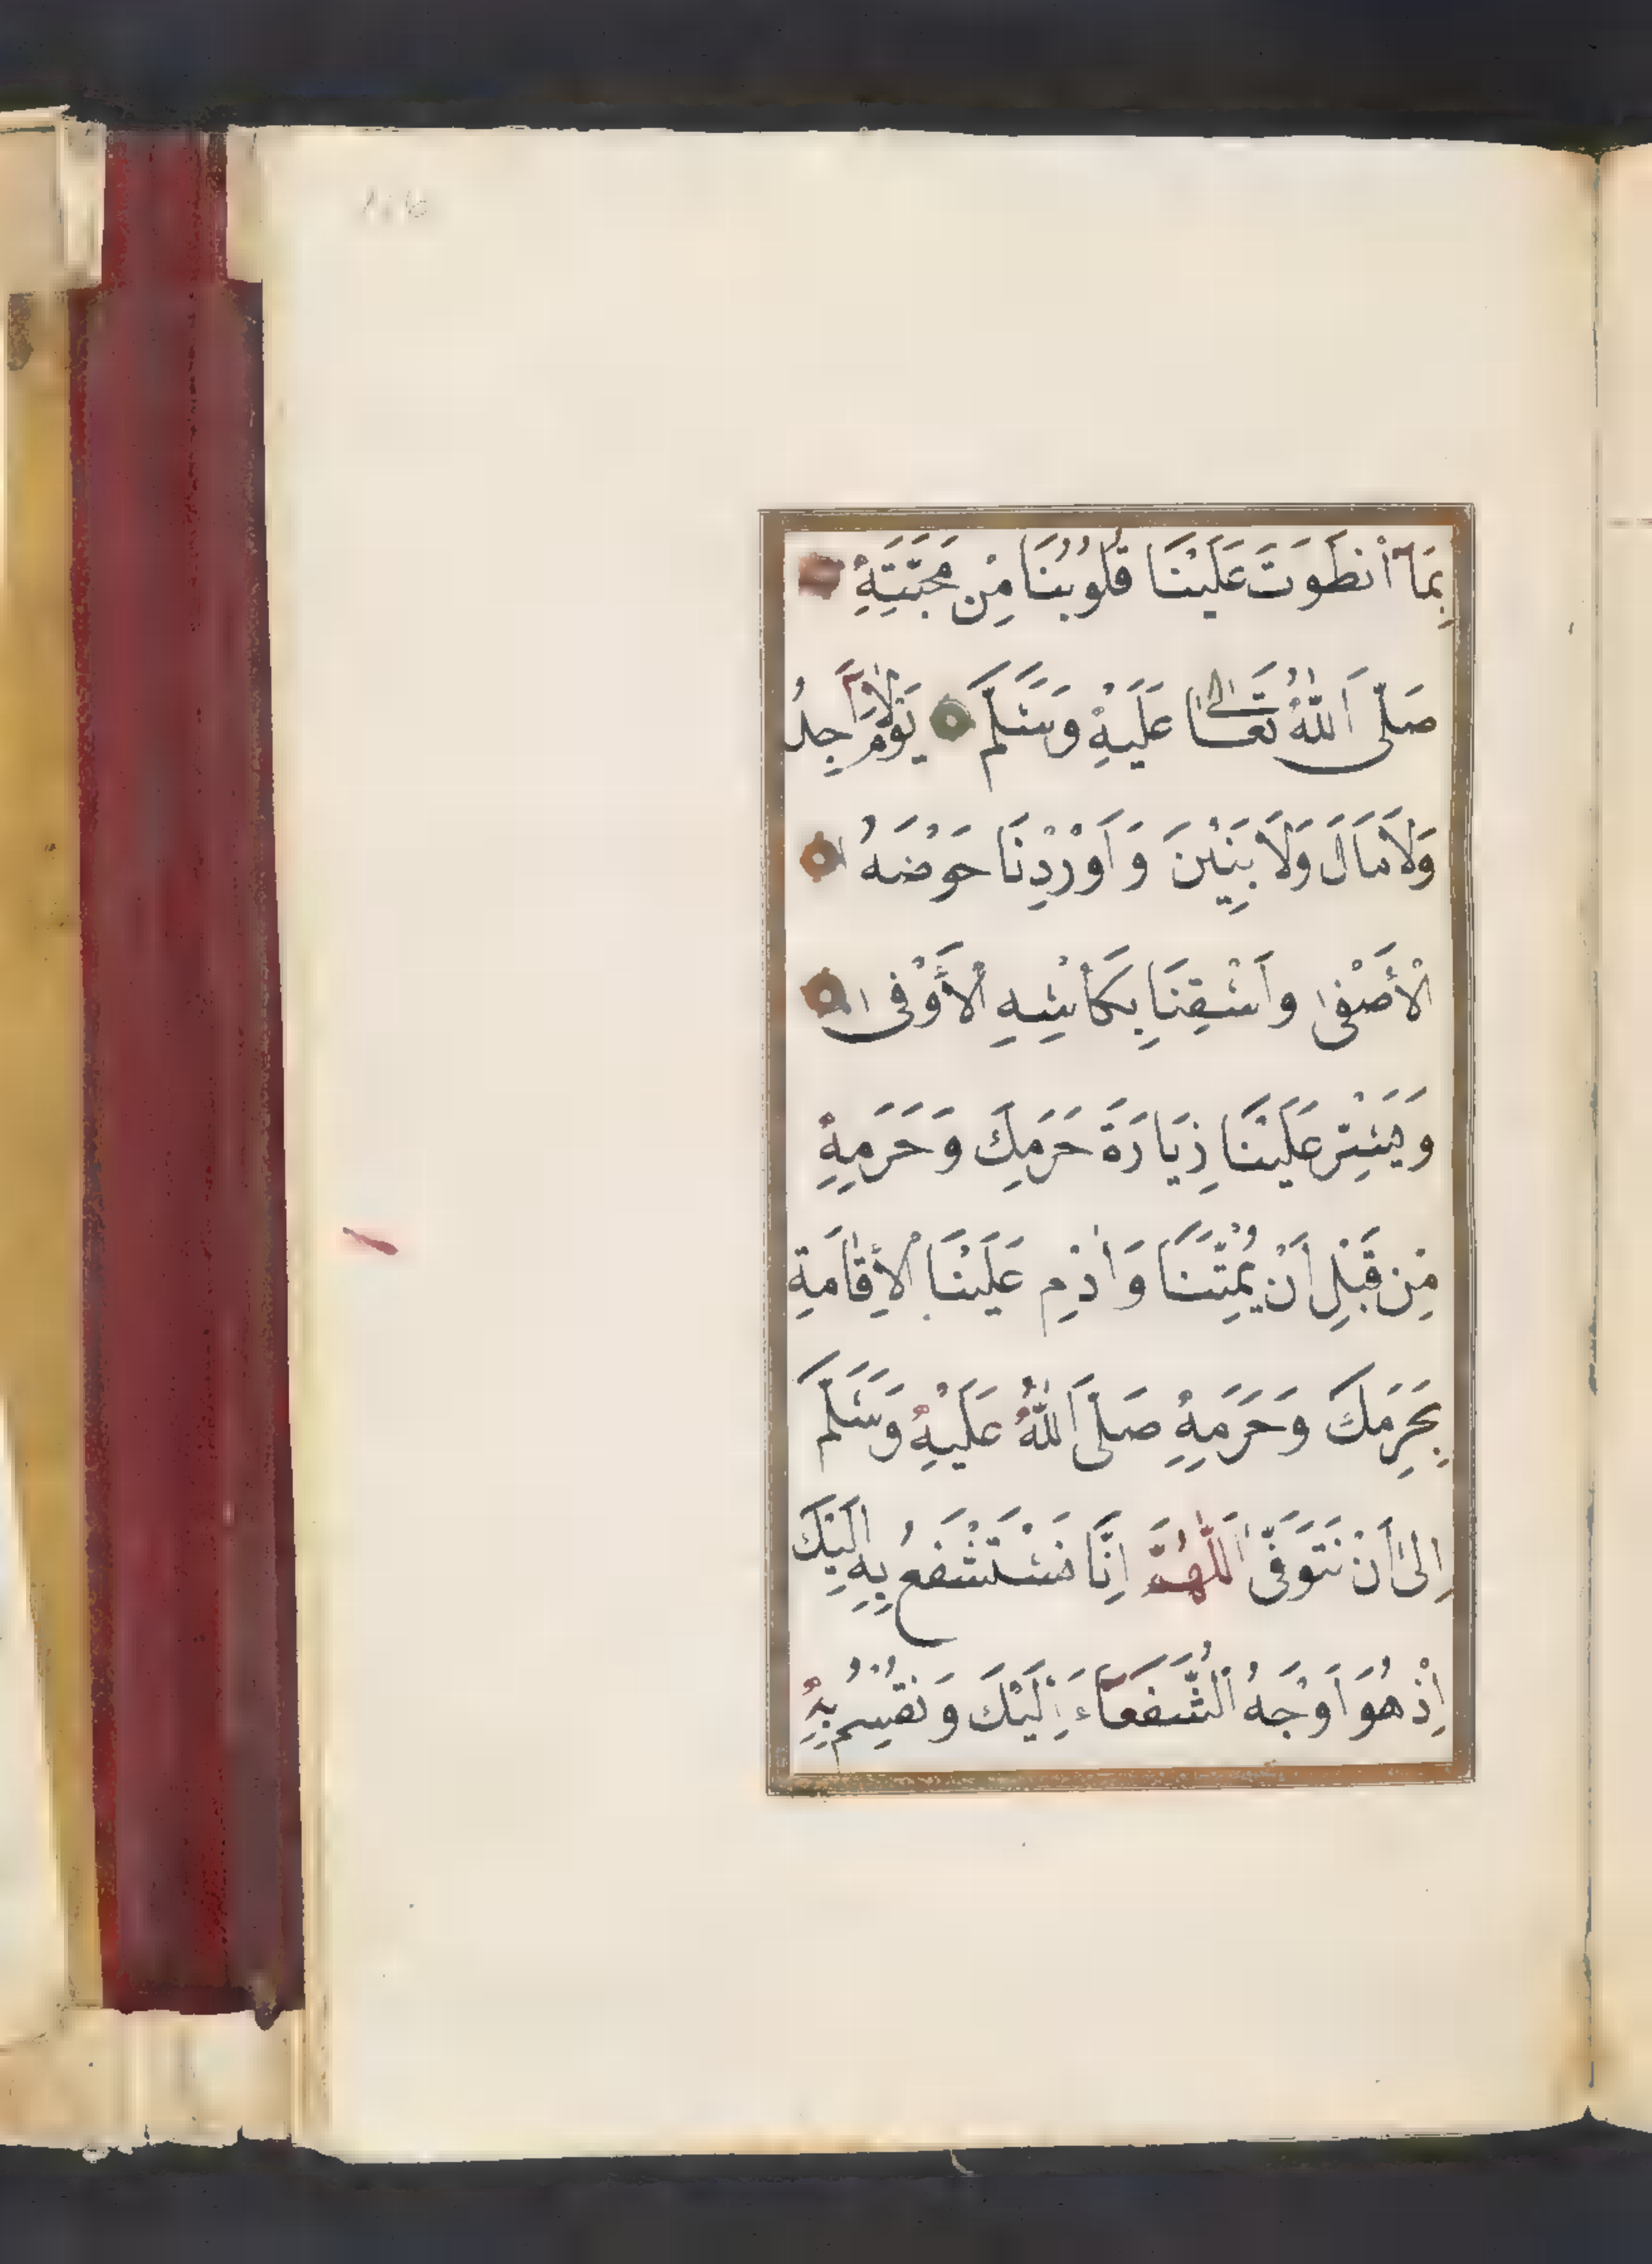 بِمَا أنْطَوَتْ عَلَيْنَا قُلُوبُنَا مِنْ مَحَبَّتِهِ
صَلَّى اَللّٰهُ تَعَالىٰ عَلَيْهِ وَسَلَّمَ يَوْمَ لَا جِدُ
وَلَا مَالَ وَلَا بَنِيْنَ وَ اَوْرِدْنَا حَوْضَهُ
الْأَصْفىٰ وَاَسْقِنَا بِكَأْسِهِ الْأَوْفىٰ
وَيَسِّرْ عَلَيْنَا زِيَارَةَ حَرَمِكَ وَحَرَمِهِ
مِنْ قَبْلِ اَنْ تُمِتَّنَا وَاَدِمِ عَلَيْنَا الْأِقَامَةِ
بِحَرَمِكَ وَحَرَمِهِ صَلَّى اَللّٰهُ عَلَيْهِ وَسَلَّمَ
اِلىٰ اَنْ نَتَوَفّٰى اَللّٰهُمَّ اِنَّا نَسْتَشْفَعُ بِهِ اِلَيْكَ
اِذْ هُوَ اَوْجَهُ الشُّفَعَآءَ اِلَيْكَ وَنُقْسِمُ بِهِ